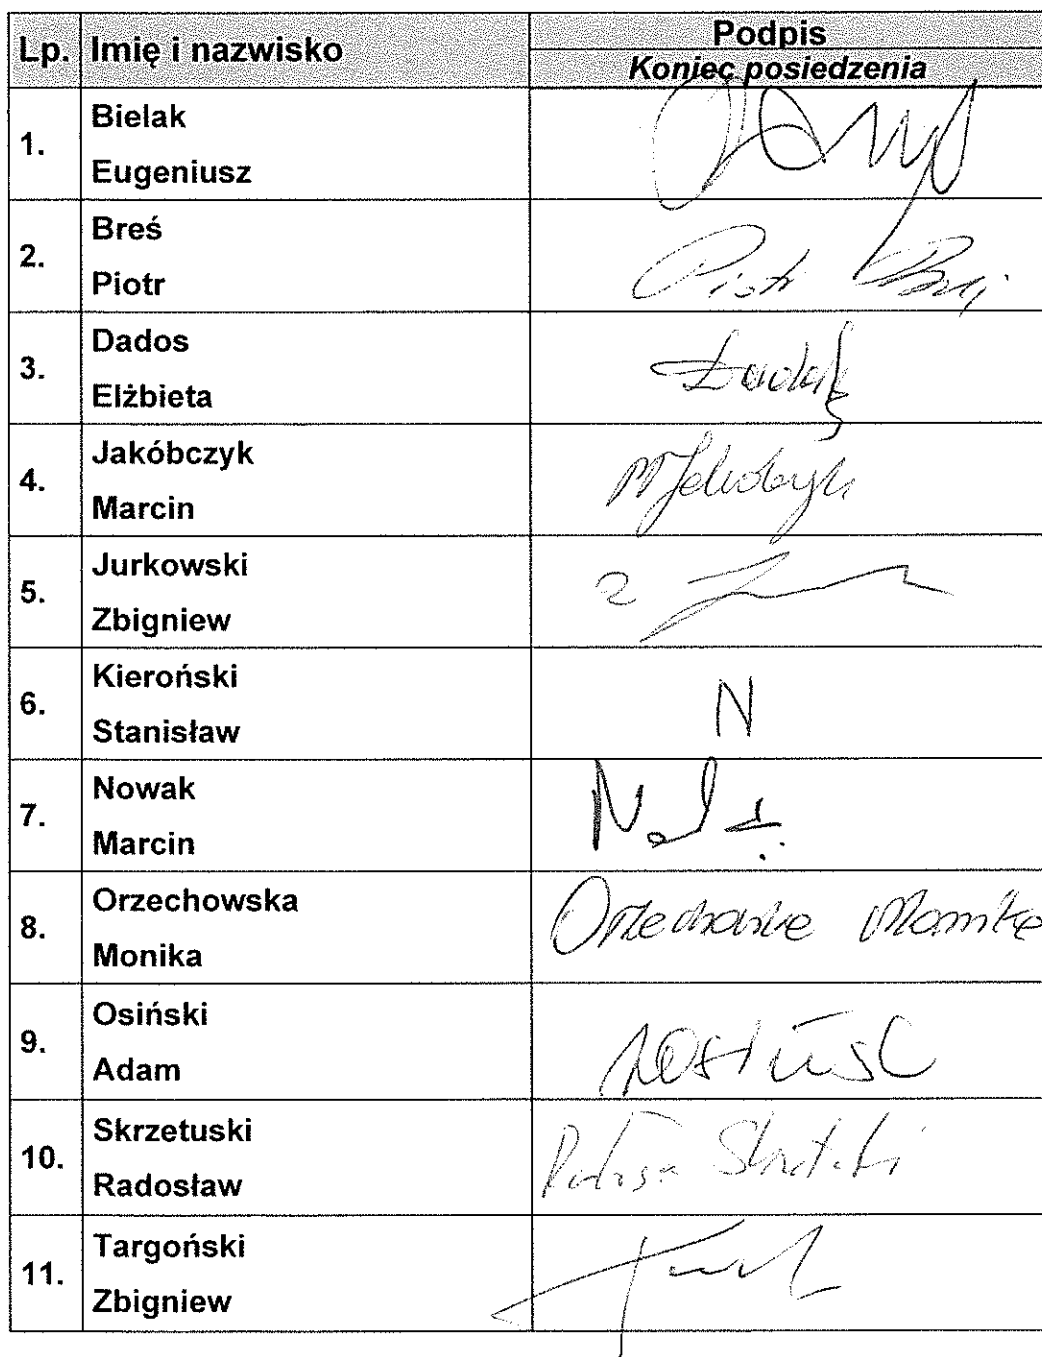 Lp. Imię i nazwisko Podpis
Koniec posiedzenia
1. Bielak
Eugeniusz
2. Breś
Piotr
Piotr
3. Dados
Elżbieta
4. Jakóbczyk
Marcin
5. Jurkowski
Zbigniew
6. Kieroński
Stanisław
N
7. Nowak
Marcin
8. Orzechowska
Monika
Orzechowska Monika
9. Osiński
Adam
10. Skrzetuski
Radosław
11. Targoński
Zbigniew